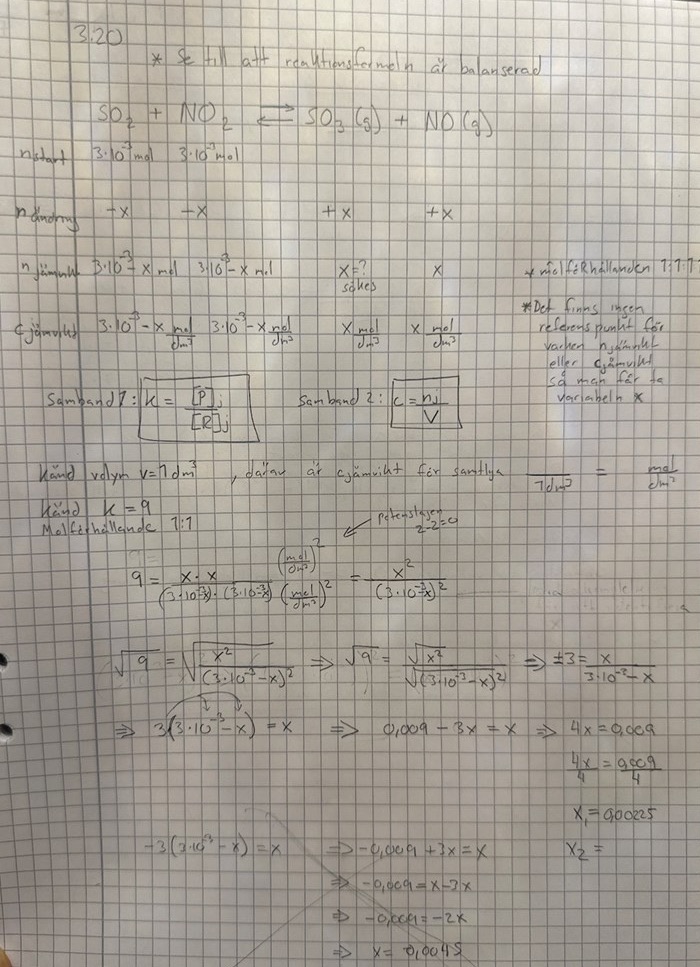 3.20
* Se till att reaktionsformeln är balanserad
SO₂ + NO₂ ⇌ SO₃(g) + NO(g)
nstart 3·10⁻³mol 3·10⁻³mol
nändring -x -x +x +x
njämvikt 3·10⁻³-x mol 3·10⁻³-x mol x=? x
sökes
* molförhållanden 1:1:1:1
cjämvikt 3·10⁻³-x mol/dm³ 3·10⁻³-x mol/dm³ x mol/dm³ x mol/dm³
* Det finns ingen
referenspunkt för
varken njämvikt
eller cjämvikt
så man får ta
variabeln x
Samband 1: K = [P]j/[R]j Samband 2: c = nj/V
Känd volym v=1dm³, därav är cjämvikt för samtliga /1dm³ = mol/dm³
Känd K=9
Molförhållande 1:1
potenslagen
2-2=0
9 = x·x/(3·10⁻³-x)·(3·10⁻³-x) (mol/dm³)²/(mol/dm³)² = x²/(3·10⁻³-x)²
√9 = √(x²/(3·10⁻³-x)²) ⇒ √9 = √x²/√(3·10⁻³-x)² ⇒ ±3 = x/3·10⁻³-x
⇒ 3(3·10⁻³-x) = x ⇒ 0,009 - 3x = x ⇒ 4x = 0,009
4x/4 = 0,009/4
x₁ = 0,00225
-3(3·10⁻³-x) = x ⇒ -0,009 + 3x = x x₂ =
⇒ -0,009 = x-3x
⇒ -0,009 = -2x
⇒ x = 0,0045